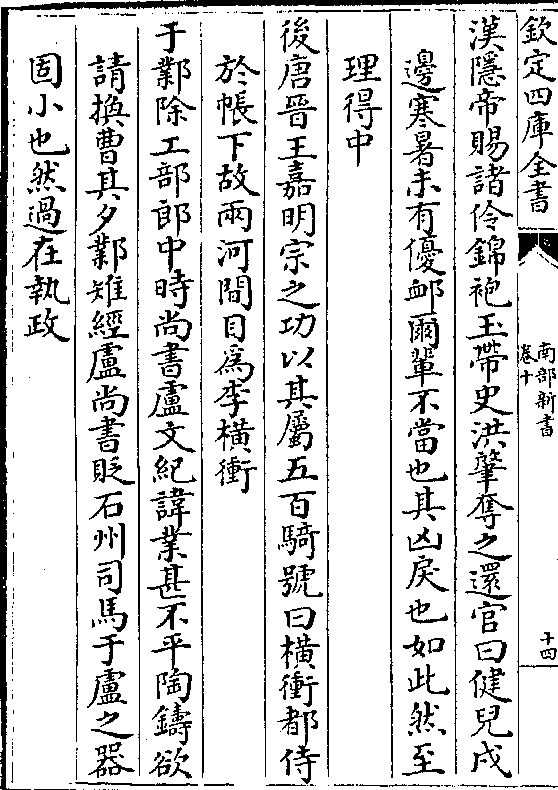 欽定四庫全書
南部新書
卷十
十四
漢隱帝賜諸伶錦袍玉帶史洪肇奪之還官曰健兒戍
邊寒暑未有優卹爾輩不當也其凶戾也如此然至
理得中
後唐晉王嘉明宗之功以其屬五百騎號曰橫衝都侍
於帳下故兩河間目為李橫衝
于鄴除工部郎中時尚書盧文紀諱業甚不平陶鑄欲
請換曹其夕鄴雉經盧尚書貶石州司馬于盧之器
固小也然過在執政